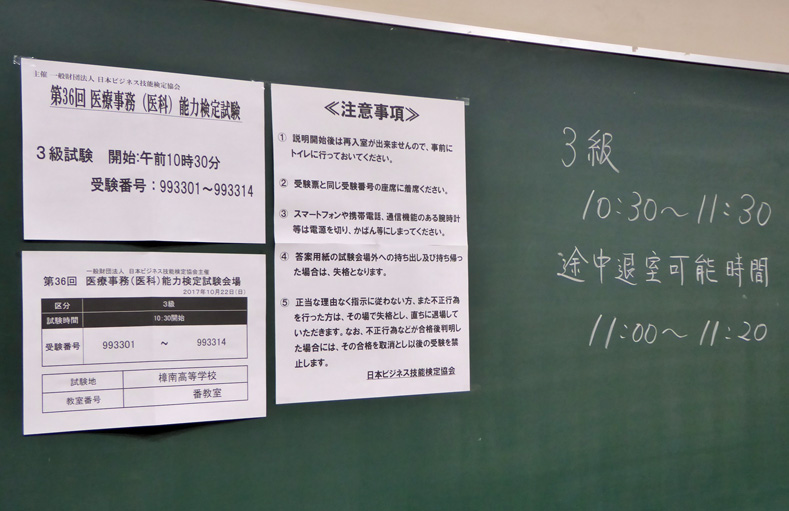 主催 一般財団法人 日本ビジネス技能検定協会
第36回 医療事務（医科）能力検定試験
３級試験　開始:午前10時30分
受験番号：993301～993314
一般財団法人 日本ビジネス技能検定協会主催
第36回 医療事務（医科）能力検定試験会場
2017年10月22日（日）
区分 3級
試験時間 10:30開始
受験番号 993301 ～ 993314
試験地 樟南高等学校
教室番号 番教室
≪注意事項≫
① 説明開始後は再入室が出来ませんので、事前に
トイレに行っておいてください。
② 受験票と同じ受験番号の座席に着席ください。
③ スマートフォンや携帯電話、通信機能のある腕時計
等は電源を切り、かばん等にしまってください。
④ 答案用紙の試験会場外への持ち出し及び持ち帰っ
た場合は、失格となります。
⑤ 正当な理由なく指示に従わない方、また不正行為
を行った方は、その場で失格とし、直ちに退場して
いただきます。なお、不正行為などが合格後判明し
た場合には、その合格を取消とし以後の受験を禁
止します。
日本ビジネス技能検定協会
3級
10:30～11:30
途中退室可能時間
11:00～11:20